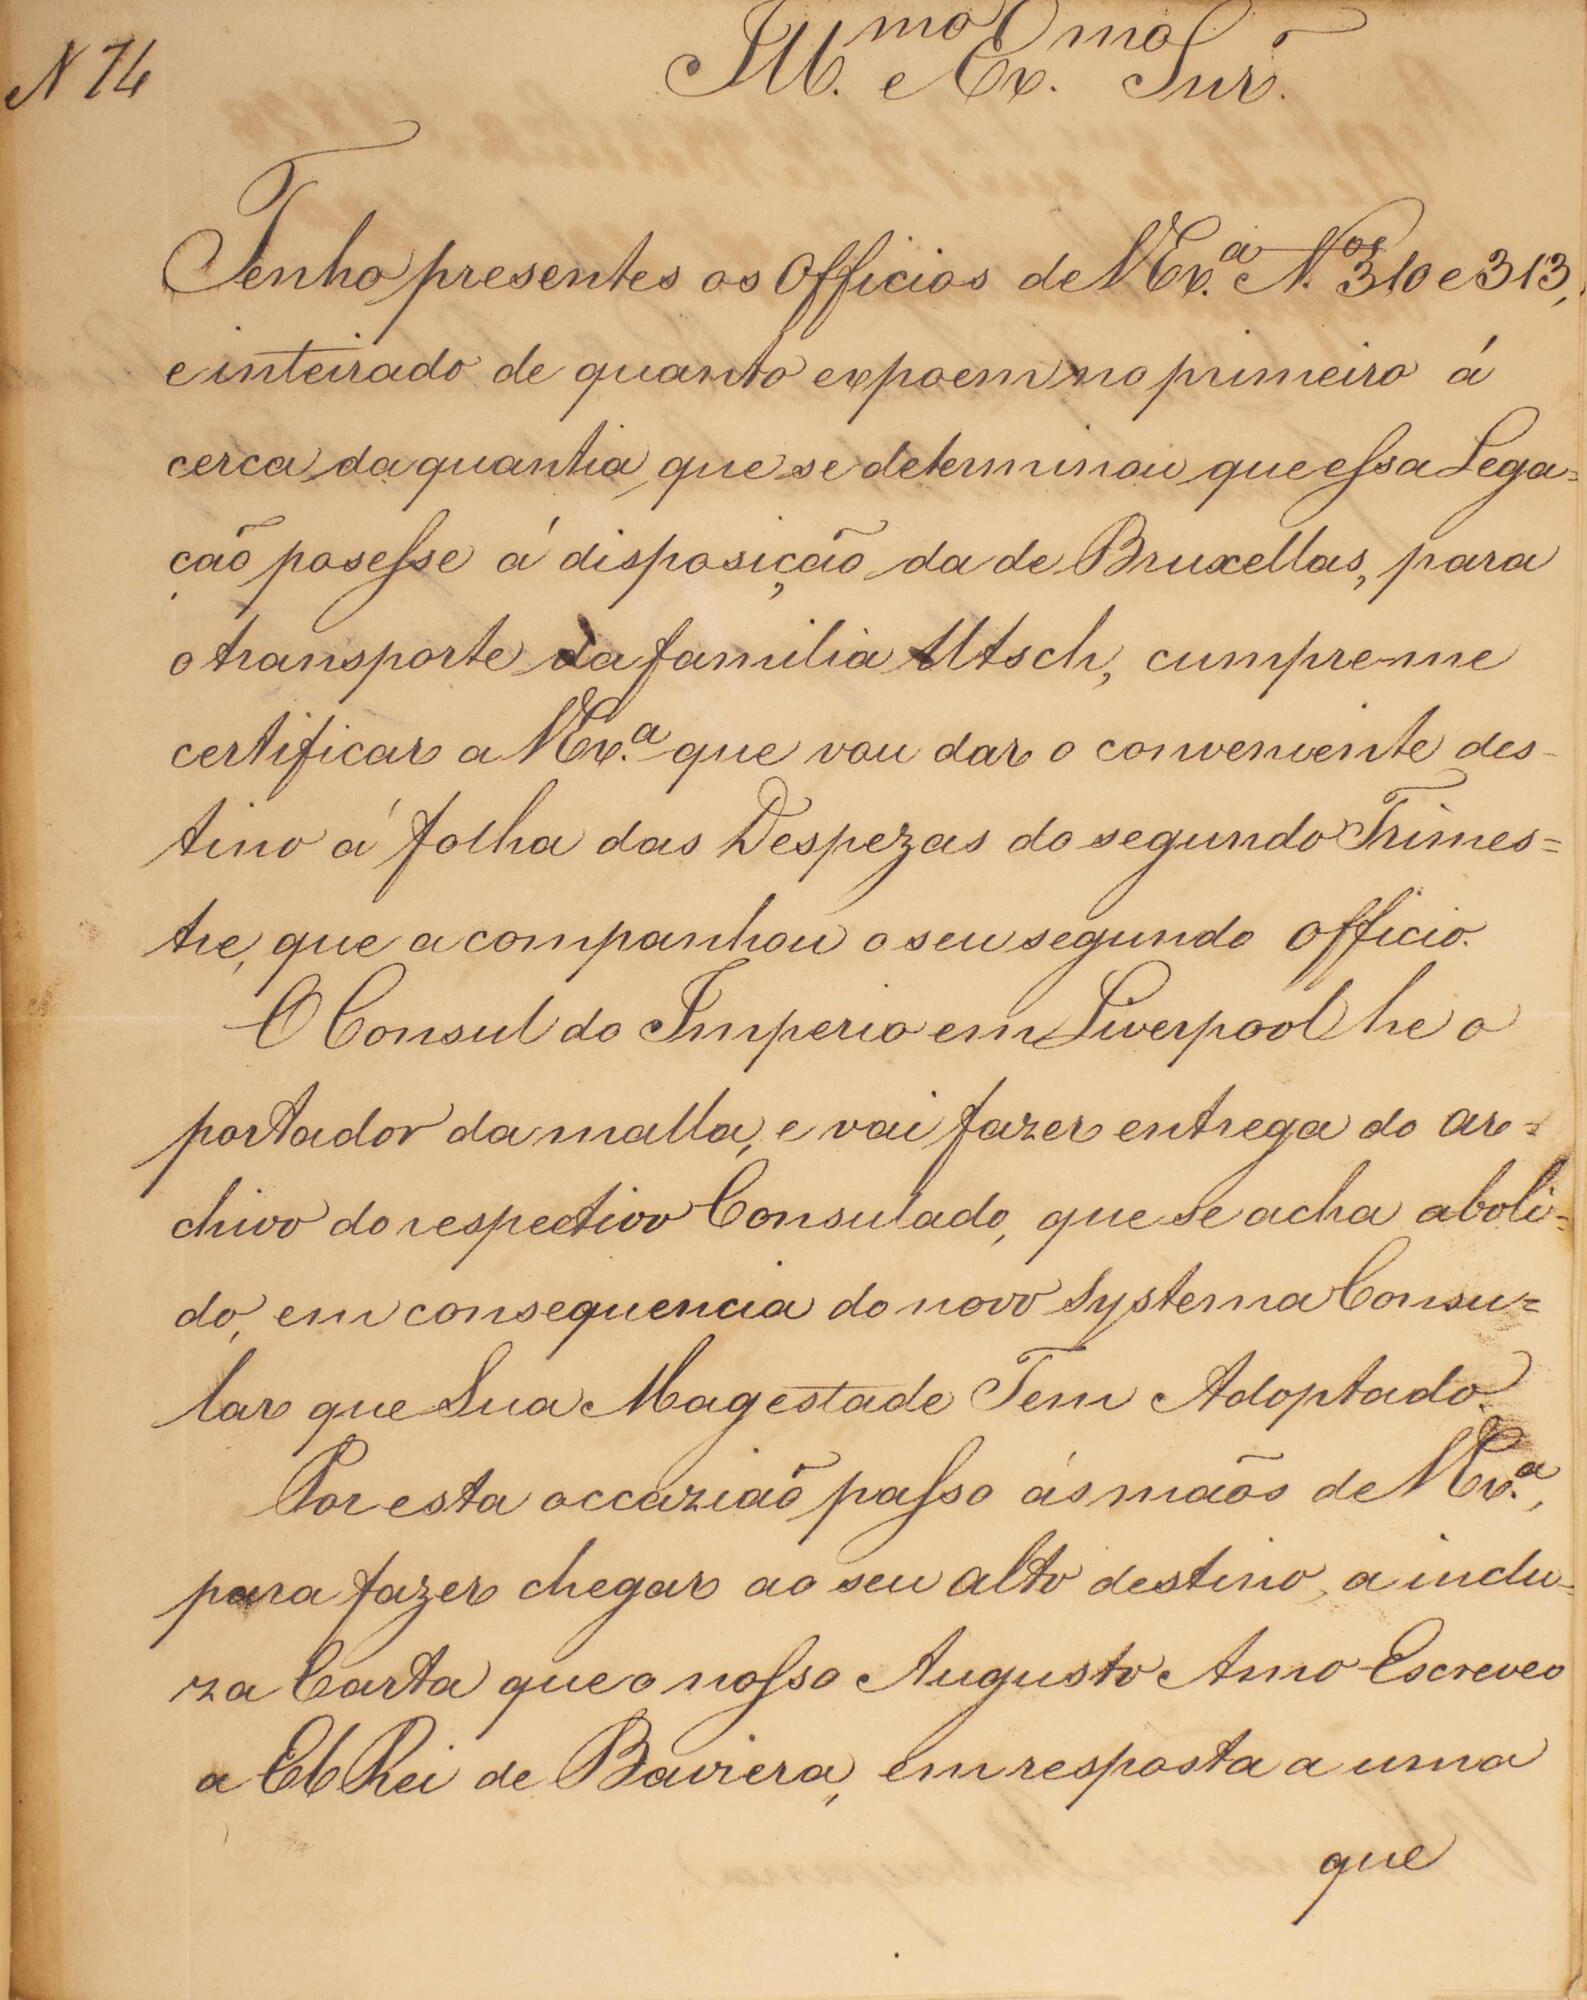 N 74
Ill.mo e Ex.mo Snr.
Tenho presentes os Officios de V Ex.a N.os 310 e 313,
e inteirado de quanto expoem no primeiro á
cerca da quantia, que se determinou que essa Lega=
ção posesse á disposição da de Bruxellas, para
o transporte da familia Utsch, cumpre-me
certificar a V Ex.a que vou dar o conveniente des-
tino á folha das Despezas do segundo Trimes=
tre, que acompanhou o seu segundo officio.
O Consul do Imperio em Liverpool he o
portador da malla, e vai fazer entrega do ar=
chivo do respectivo Consulado, que se acha aboli=
do, em consequencia do novo systema Consu=
lar que Sua Magestade Tem Adoptado.
Por esta occazião passo ás mãos de V Ex.a,
para fazer chegar ao seu alto destino, a inclu=
za Carta que o nosso Augusto Amo Escreveo
a El Rei de Baviera, em resposta a uma
que